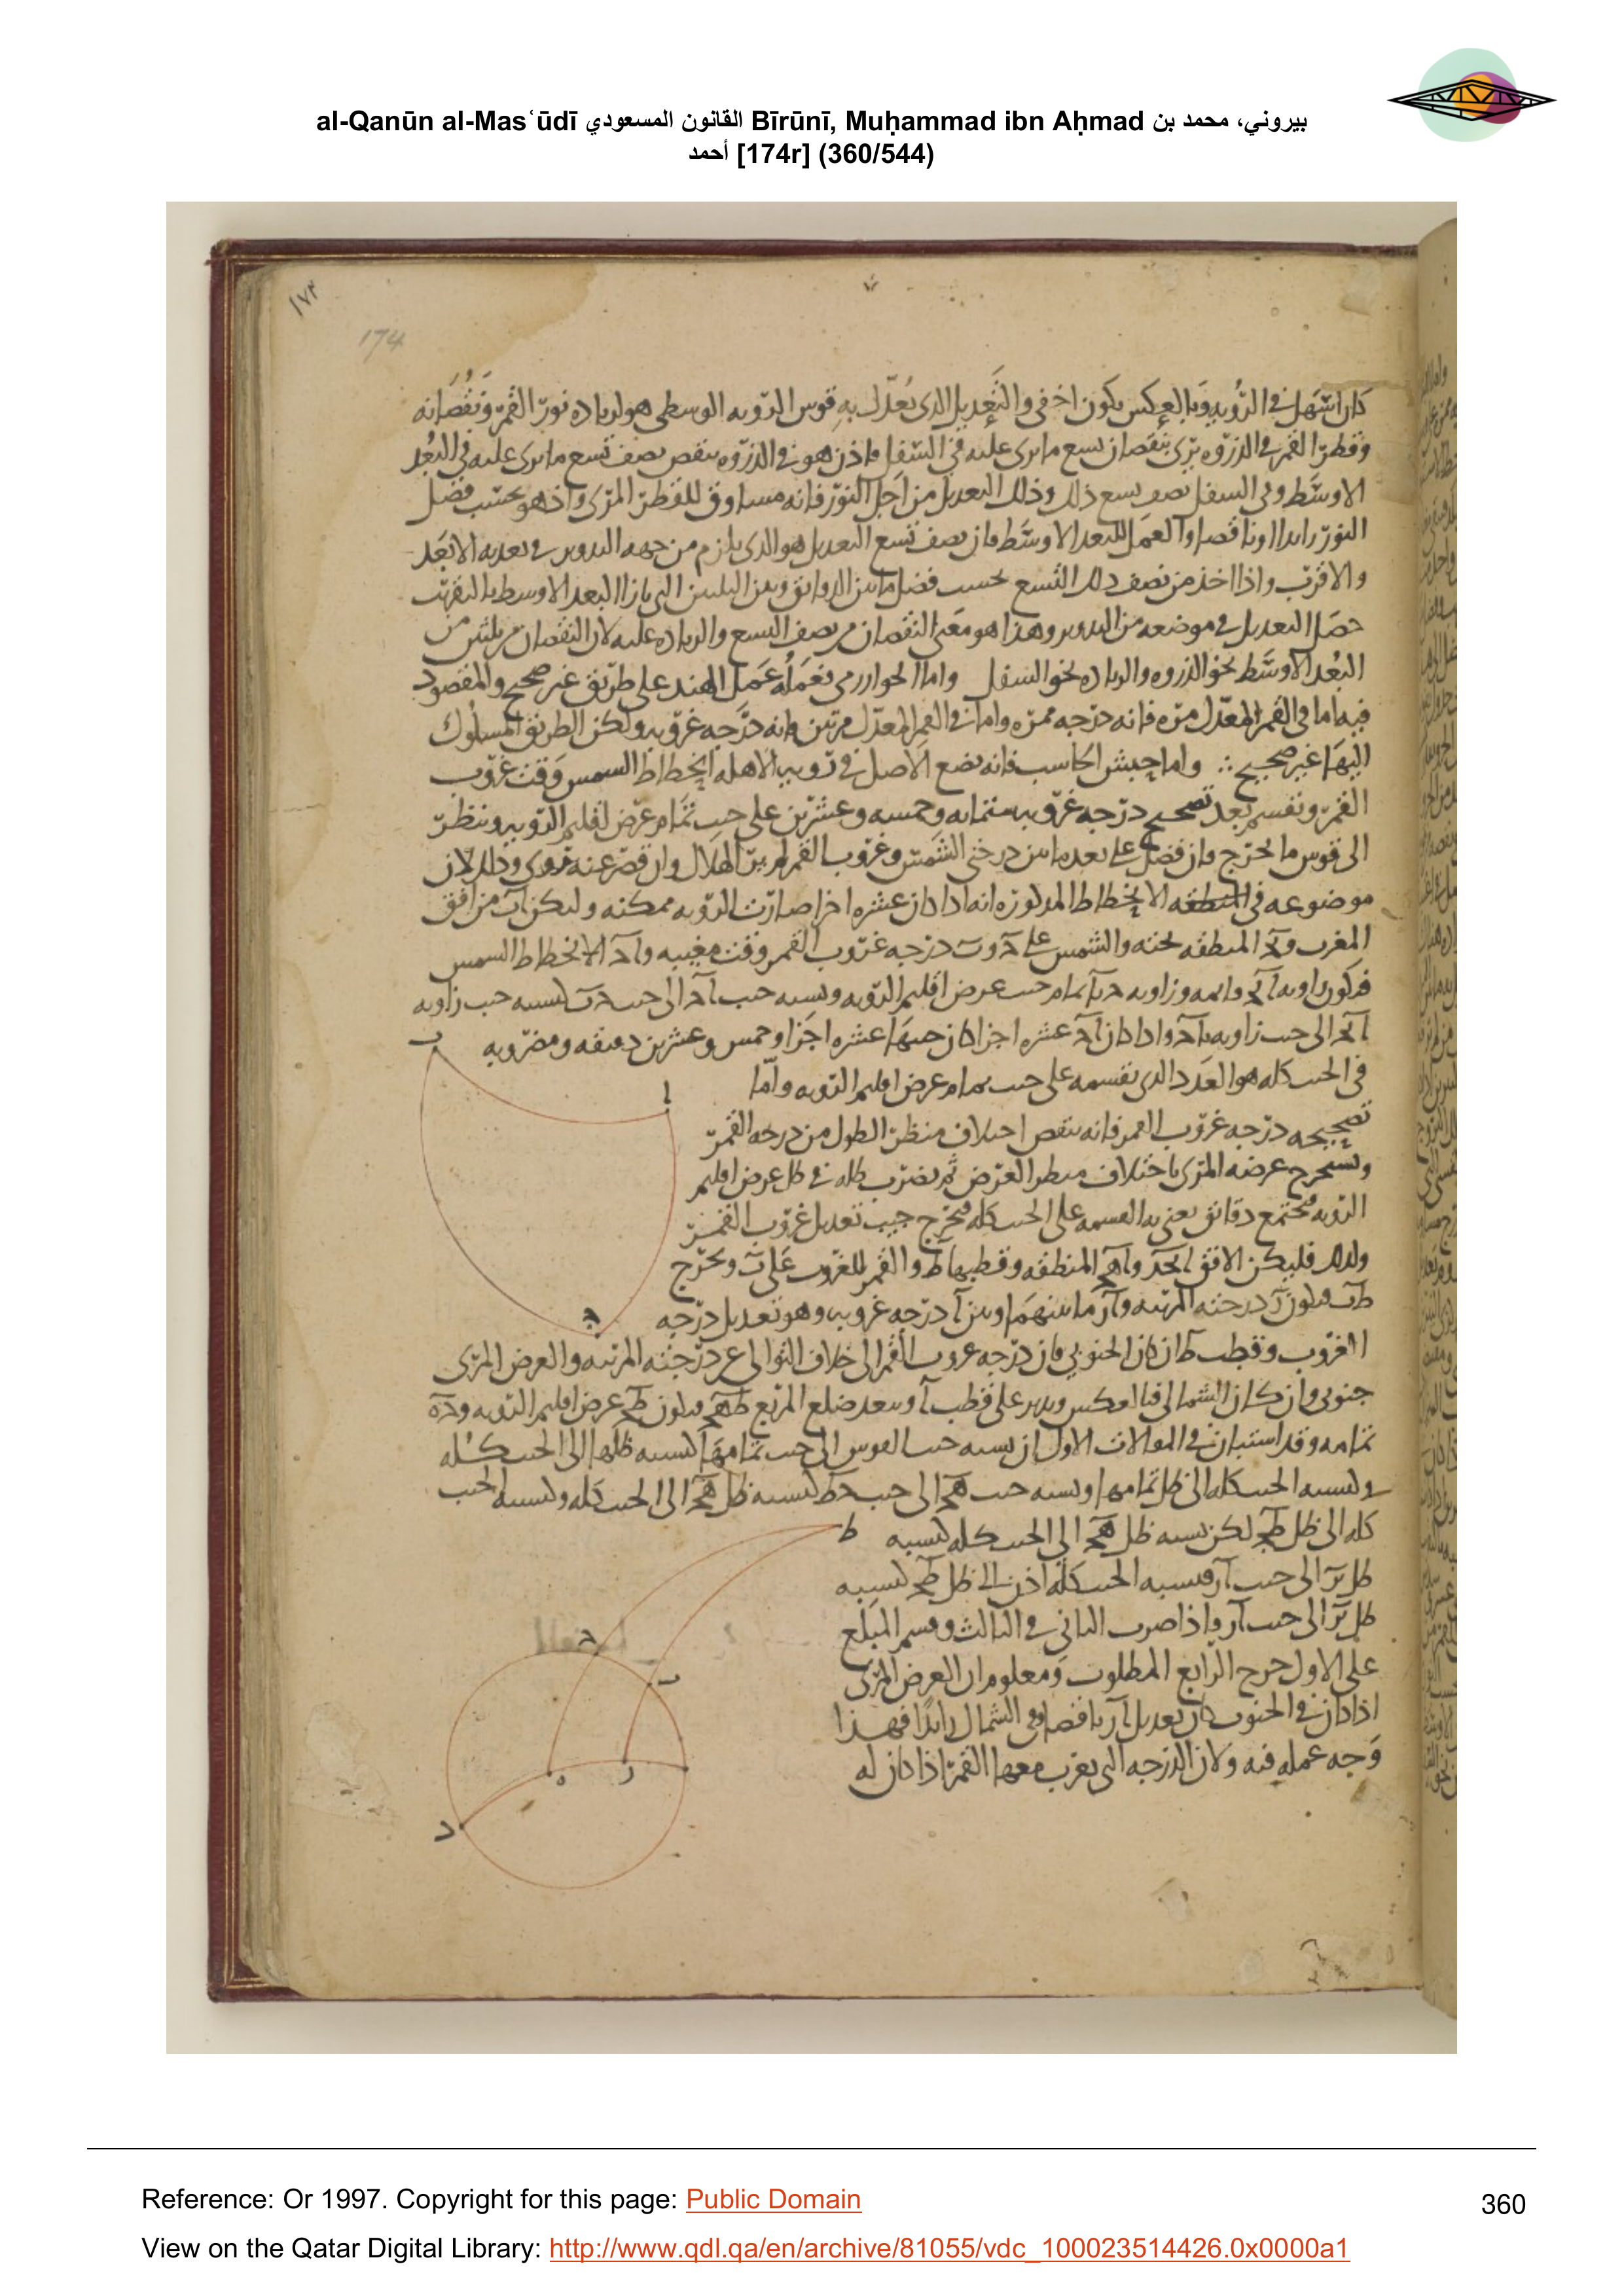 al-Qanūn al-Masʿūdī القانون المسعودي Bīrūnī, Muḥammad ibn Aḥmad بيروني، محمد بن
أحمد [174r] (360/544)
١٧٤
174
كان اسهل في الرؤيه وبالعكس يكون اخفى والتعديل الذى يعدل به قوس الرويه الوسطى هو لزياده نور القمر ونقصانه
وقطر القمر في الذروه يرى بنقصان تسع ما يرى عليه في السفل فاذن هو في الذروه ينقص نصف تسع ما يرى عليه في البعد
الاوسط وفى السفل نصف تسع ذلك وذلك التعديل من اجل النور فانه مساوق للقطر المرئ واذ هو بحسب فضل
النور زايدا او ناقصا والعمل للبعد الاوسط فان نصف تسع التعديل هو الذى يلزم من جهه التدوير في بعديه الابعد
والاقرب واذا اخذ من نصف ذلك التسع بحسب فضل ما بين الدقايق وبين الثلثين التى بازا البعد الاوسط بالتقريب
حصل التعديل في موضعه من التدوير وهذا هو معنى النقصان من نصف التسع والزياده عليه لان النقصان من ثلثين من
البعد الاوسط نحو الذروه والزياده نحو السفل واما الخوارزمى فعمله عمل الهند على طريق غير صحيح والمقصود
فيه اما في القمر المعدل مره فانه درجه ممره واما في القمر المعدل مرتين فانه درجه غروبه ولكن الطريق المسلوك
اليها غير صحيح ∴ واما حبش الحاسب فانه يضع الاصل في رويه الاهله انحطاط الشمس وقت غروب
القمر ونقسم بعد تصحيح درجه غروبه ستمايه وخمسه وعشرين على جيب تمام عرض اقليم الرويه وننظر
الى قوس ما يخرج فان فضل على بعد ما بين درجتى الشمس وغروب القمر لم ير الهلال وان قصر عنه روى وذلك لان
موضوعه في الانحطاط المذكور انه اذا كان عشره اجزا صارت الرويه ممكنه وليكن اب من افق
المغرب و المنطقه تحته والشمس على و ب درجه غروب القمر وقت مغيبه و الانحطاط الشمس
فيكون زاويه قايمه وزاويه تمام عرض اقليم الرويه ونسبه جيب الى جيب كنسبه جيب زاويه
الى جيب زاويه واذا كان عشره اجزا كان جيبها عشره اجزا وخمس وعشرين دقيقه ومضروبه
في الجيب كله هو العدد الذى يقسمه على جيب تمام عرض اقليم الرويه واما
تصحيحه درجه غروب القمر فانه ينقص اختلاف منظر الطول من درجه القمر
ويستخرج عرضه المرئ باختلاف منظر العرض ثم يضرب ظله في ظل عرض اقليم
الرويه فيجتمع دقايق يعنى به القسمه على الجيب كله فيخرج جيب تعديل غروب القمر
ولذلك فليكن الافق و المنطقه وقطبها ط والقمر للغروب على ب ونخرج
فيكون درجته المرئيه و ما بينهما وبين ا درجه غروبه وهو تعديل درجه
الغروب وقطب ط ان كان الجنوبى فان درجه غروب القمر الى خلاف التوالى عن درجته المرئيه والعرض المرئ
جنوبى وان كان الشمالى فبالعكس وندير على قطب ا وببعد ضلع المربع فيكون عرض اقليم الرويه و
تمامه وقد استبان في المقالات الاول ان نسبه جيب القوس الى جيب تمامها كنسبه ظلها الى الجيب كله
وكنسبه الجيب كله الى ظل تمامها ونسبه جيب الى جيب كنسبه ظل الى الجيب كله وكنسبه الجيب
كله الى ظل لكن نسبه ظل الى الجيب كله كنسبه
ظل الى جيب فنسبه الجيب كله اذن الى ظل كنسبه
ظل الى جيب واذا ضرب الثانى في الثالث وقسم المبلغ
على الاول خرج الرابع المطلوب ومعلوم ان العرض المرئ
اذا كان في الجنوب كان تعديل ناقصا وفى الشمال زايدا فهذا
وجه عمله فيه ولان الدرجه التى يغرب معها القمر اذا كان له
ب
ا
ط
ح
ب
ه
ر
د
Reference: Or 1997. Copyright for this page: Public Domain
360
View on the Qatar Digital Library: http://www.qdl.qa/en/archive/81055/vdc_100023514426.0x0000a1